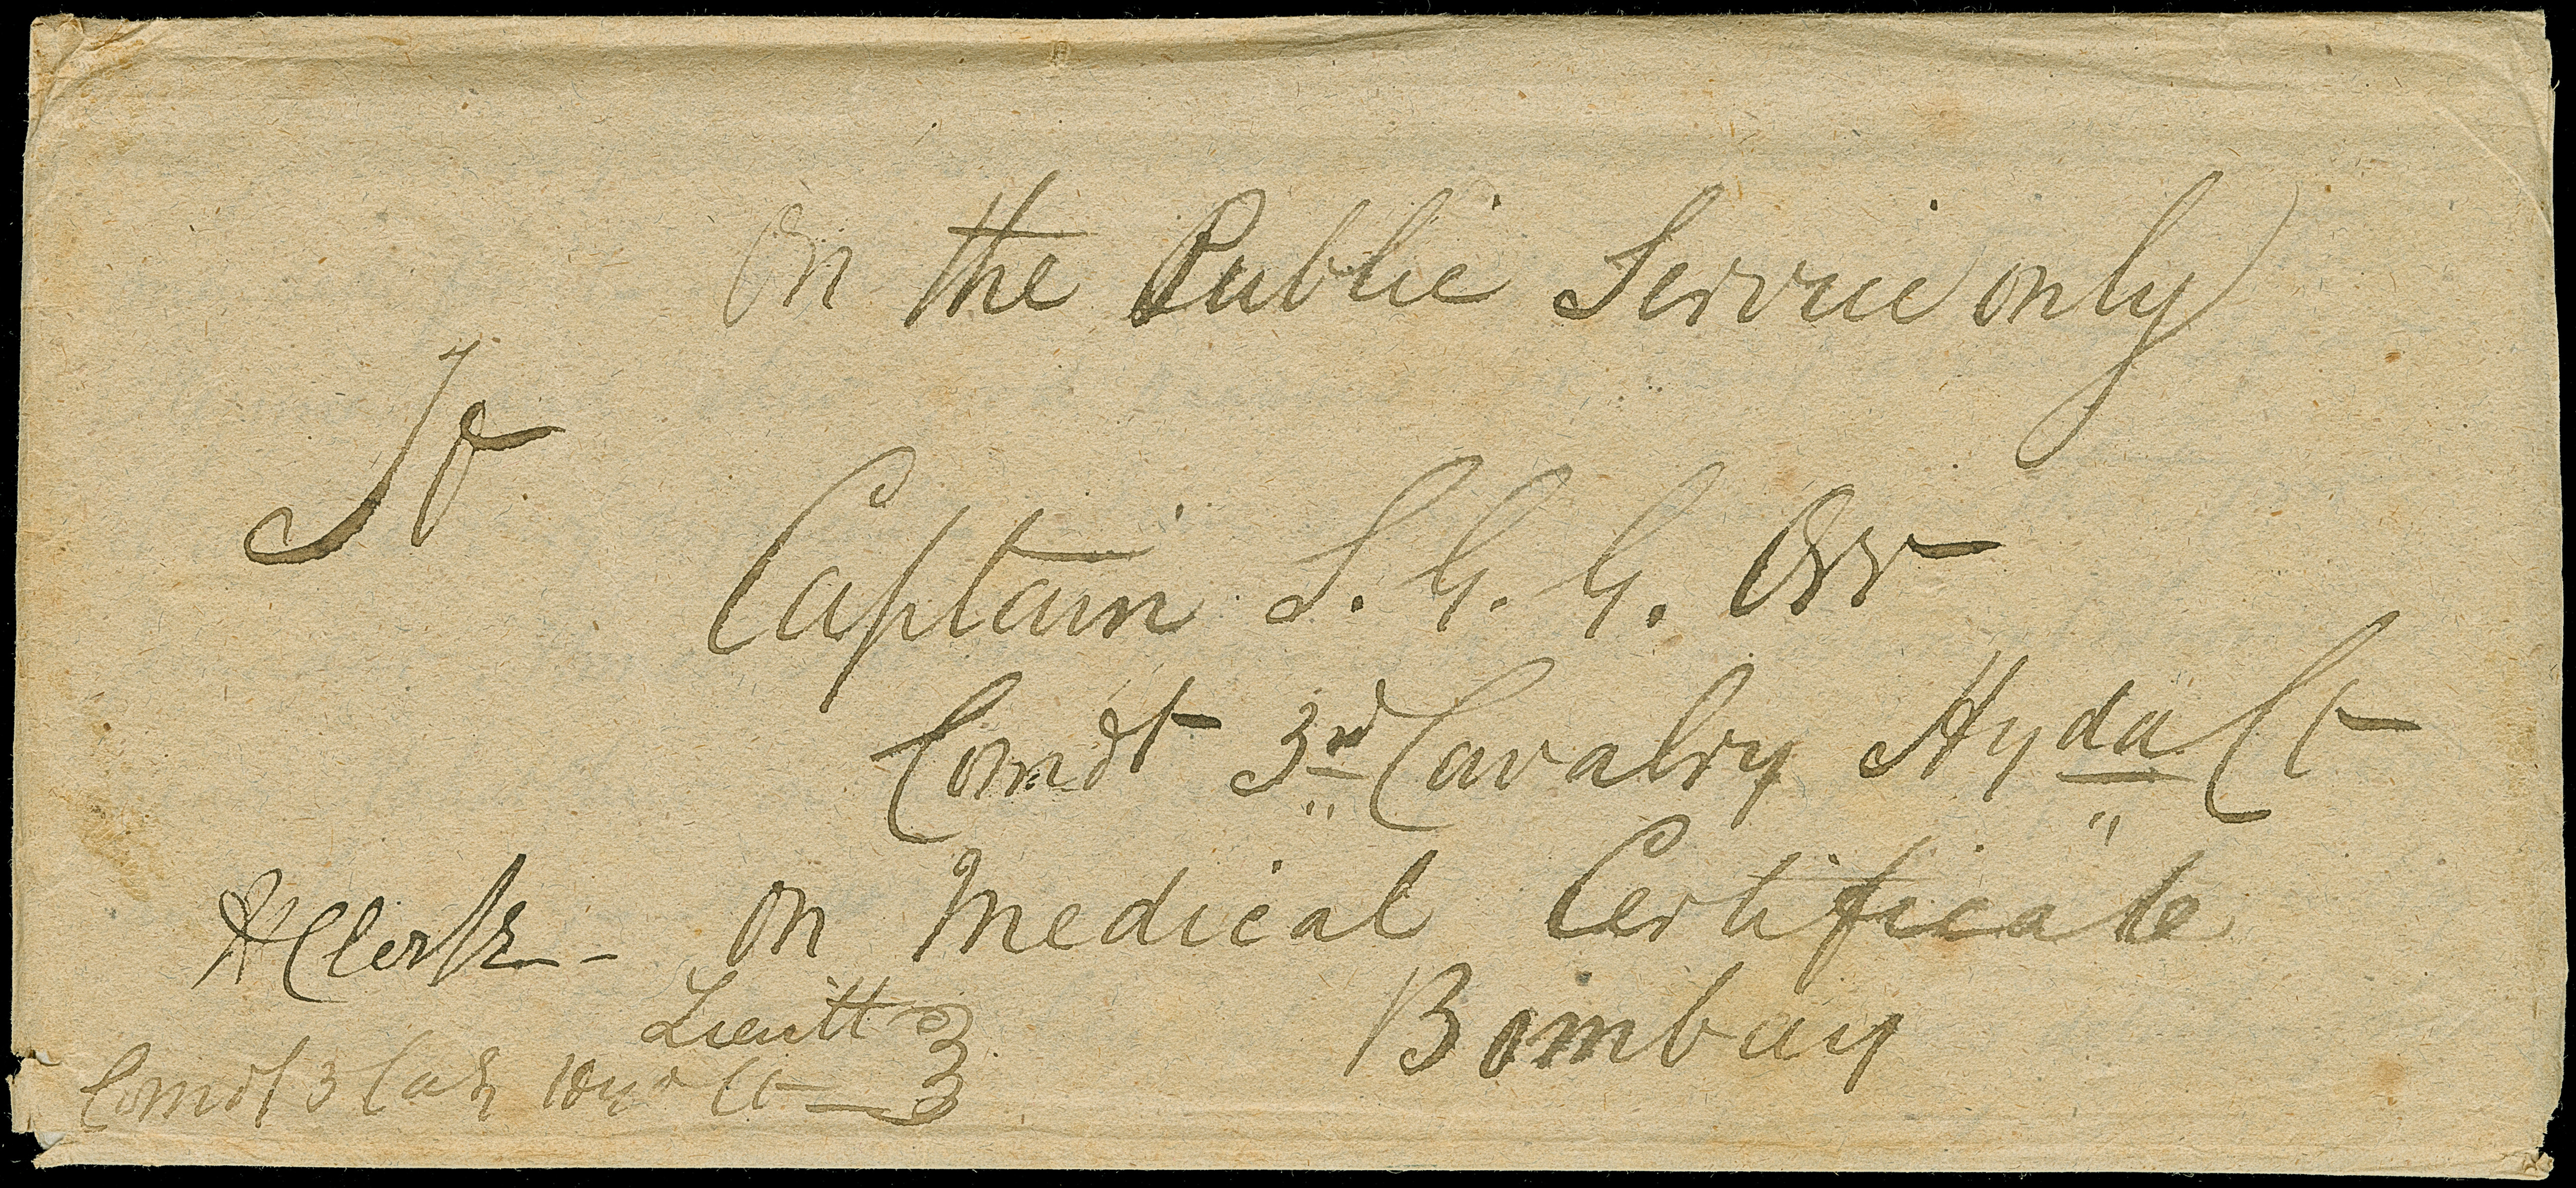 On the Public Service only
To
Captain S. G. G. Orr
Comdt 3rd Cavalry Hyda Ct
on Medical Certificate
Bombay
HClerk
Lieutt
Comdt 3 Cavy Hyd Ct